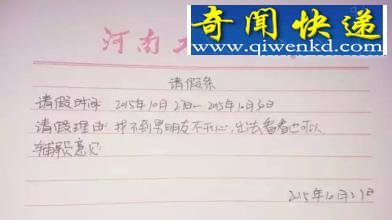 奇闻快递
www.qiwenkd.com
河南
请假条
请假时间 2015年10月27日—2015年10月30日
请假理由 找不到男朋友不开心,出去看看也可以
辅导员意见
2015年10月27日